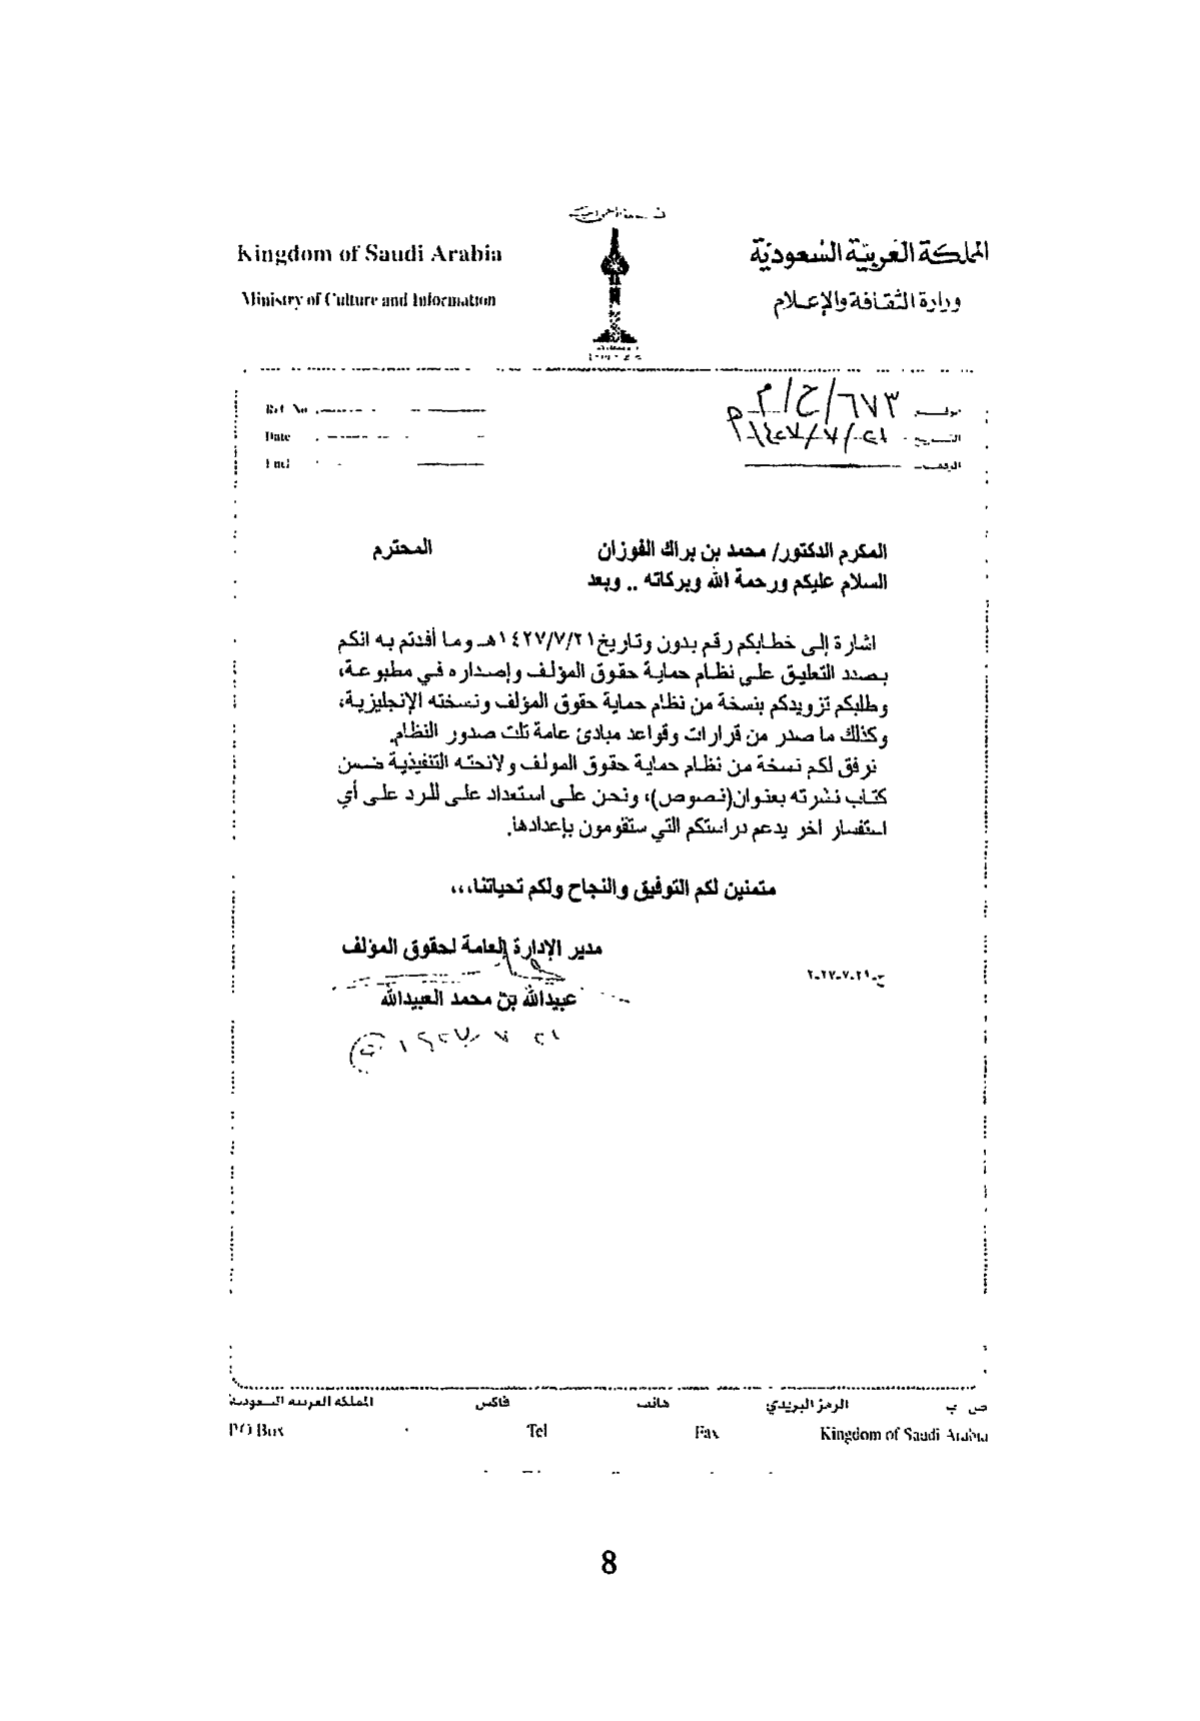 Kingdom of Saudi Arabia
المملكة العربية السعودية
Ministry of Culture and Information
وزارة الثقافة والإعلام
Ref No
٦٧٣/ح/م
Date
التاريخ ٢١/٧/١٤٢٧
Encl
المكرم الدكتور/ محمد بن براك الفوزان المحترم
السلام عليكم ورحمة الله وبركاته .. وبعد
اشارة إلى خطابكم رقم بدون وتاريخ ١٤٢٧/٧/٢١هـ وما أفدتم به انكم
بصدد التعليق على نظام حماية حقوق المؤلف وإصداره في مطبوعة،
وطلبكم تزويدكم بنسخة من نظام حماية حقوق المؤلف ونسخته الإنجليزية،
وكذلك ما صدر من قرارات وقواعد مبادئ عامة تلت صدور النظام.
نرفق لكم نسخة من نظام حماية حقوق المولف ولائحته التنفيذية ضمن
كتاب نشرته بعنوان(نصوص)، ونحن على استعداد على للرد على أي
استفسار اخر يدعم دراستكم التي ستقومون بإعدادها.
متمنين لكم التوفيق والنجاح ولكم تحياتنا،،،
مدير الإدارة العامة لحقوق المؤلف
ح-٢١-٧-٢٠٢٧
عبيدالله بن محمد العبيدالله
٢١ ٧ ١٤٢٧
ص ب الرمز البريدي هاتف فاكس المملكة العربية السعودية
P O Box Tel Fax Kingdom of Saudi Arabia
8